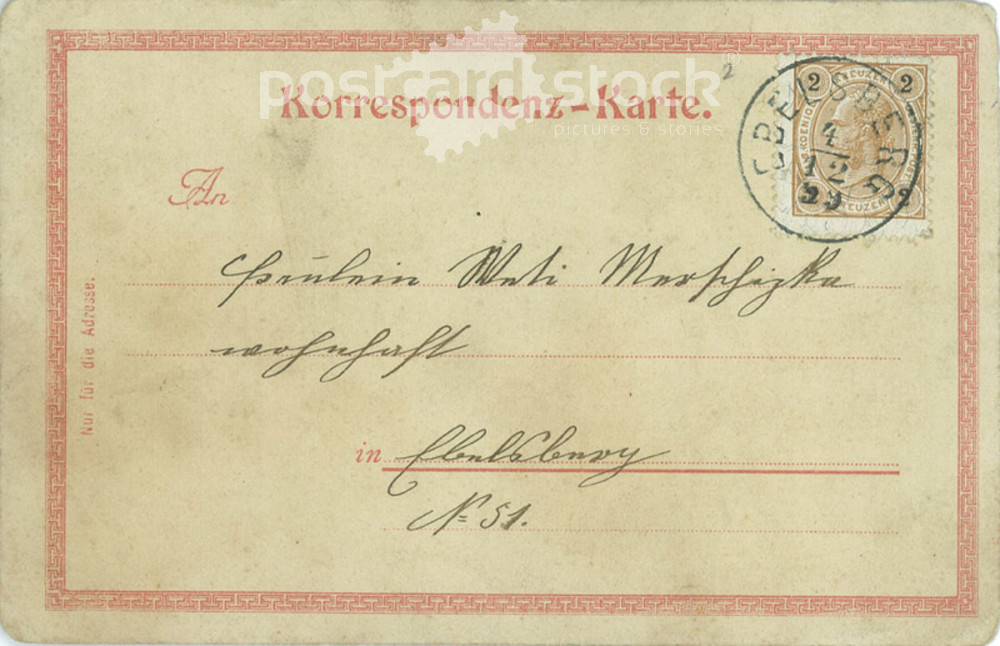 postcard stock
pictures & stories
Korrespondenz-Karte.
2
2 KREUZER 2
EBELSBERG
4
12
99
2 KREUZER 2
An
Fräulein Weti Merschizka
wohnhaft
in Ebelsberg
N= 51.
Nur für die Adresse.